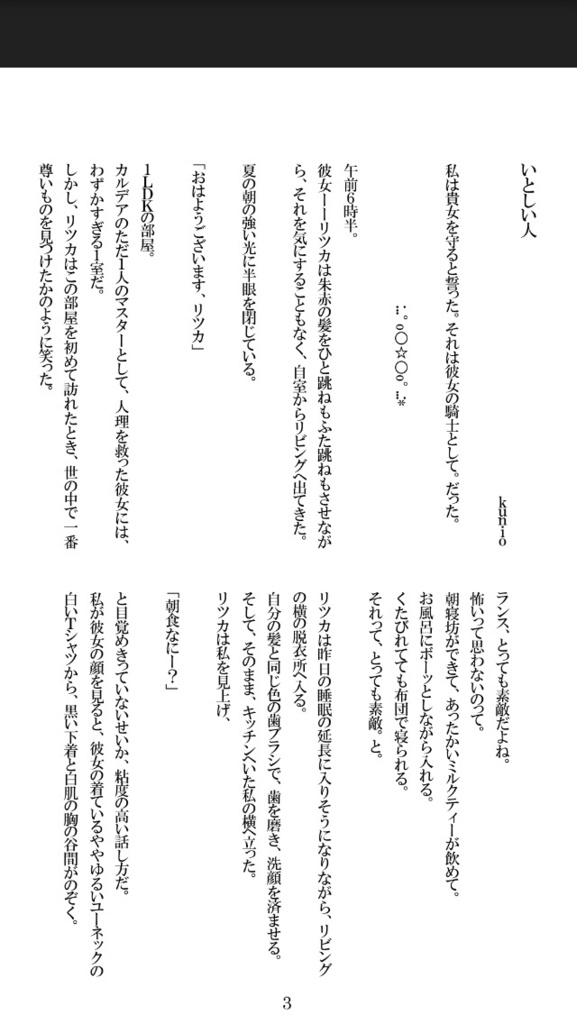 いとしい人
kunio
私は貴女を守ると誓った。それは彼女の騎士として。だった。
…。o○☆○o。…*
午前6時半。
彼女ーーリツカは朱赤の髪をひと跳ねもふた跳ねもさせなが
ら、それを気にすることもなく、自室からリビングへ出てきた。
夏の朝の強い光に半眼を閉じている。
「おはようございます、リツカ」
1LDKの部屋。
カルデアのただ1人のマスターとして、人理を救った彼女には、
わずかすぎる1室だ。
しかし、リツカはこの部屋を初めて訪れたとき、世の中で一番
尊いものを見つけたかのように笑った。
ランス、とっても素敵だよね。
怖いって思わないのって。
朝寝坊ができて、あったかいミルクティーが飲めて。
お風呂にボーッとしながら入れる。
くたびれてても布団で寝られる。
それって、とっても素敵。と。
リツカは昨日の睡眠の延長に入りそうになりながら、リビング
の横の脱衣所へ入る。
自分の髪と同じ色の歯ブラシで、歯を磨き、洗顔を済ませる。
そして、そのまま、キッチンへいた私の横へ立った。
リツカは私を見上げ、
「朝食なにー?」
と目覚めきっていないせいか、粘度の高い話し方だ。
私が彼女の顔を見ると、彼女の着ているややゆるいユーネックの
白いTシャツから、黒い下着と白肌の胸の谷間がのぞく。
3